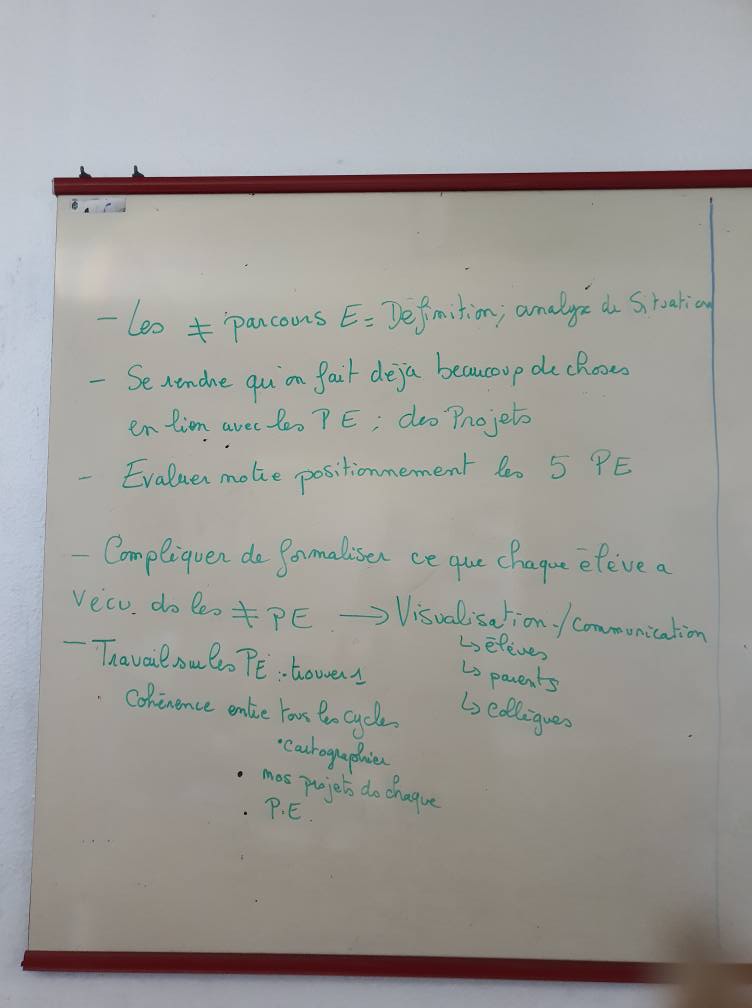 - Les ≠ parcours E = Définition; analyse de Situation
- Se rendre qu'on fait déjà beaucoup de choses
en lien avec les PE ; des Projets
- Evaluer notre positionnement les 5 PE
- Compliquer de formaliser ce que chaque élève a
vécu ds les ≠ PE → Visualisation / communication
↳ élèves
- Travail sur les PE : - trouver 1
↳ parents
cohérence entre tous les cycles
↳ collègues
• cartographier
• nos projets ds chaque
• P.E.